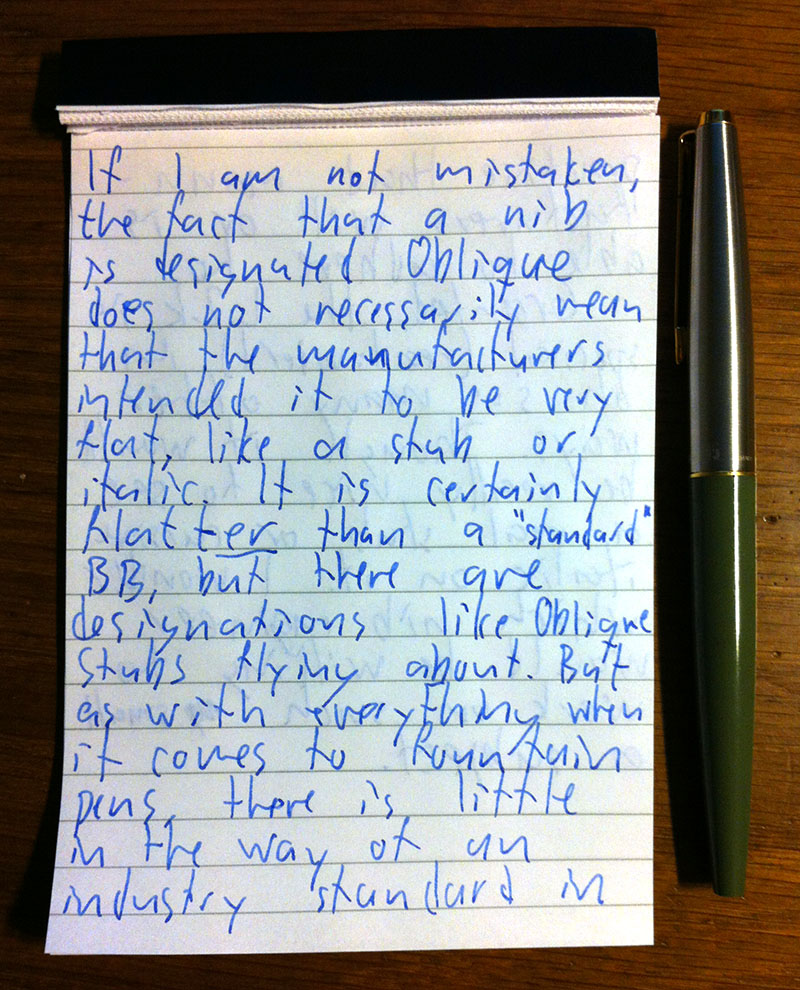 If I am not mistaken,
the fact that a nib
is designated Oblique
does not necessarily mean
that the manufacturers
intended it to be very
flat, like a stub or
italic. It is certainly
flatter than a "standard"
BB, but there are
designations like Oblique
Stubs flying about. But
as with everything when
it comes to fountain
pens, there is little
in the way of an
industry standard in